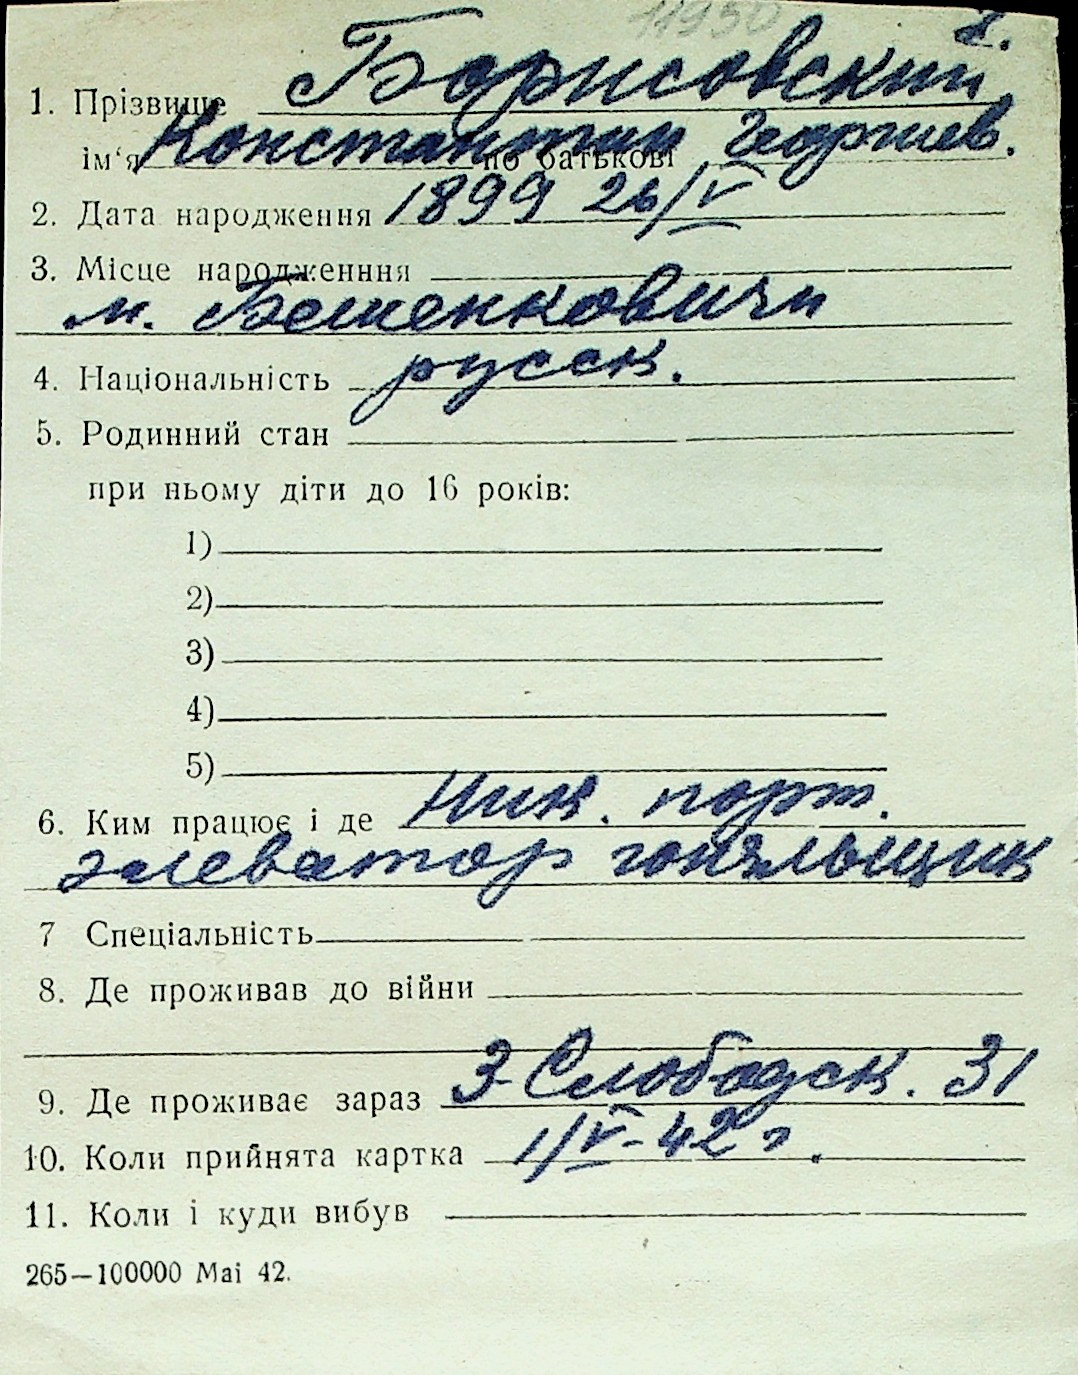 11950
1. Прізвище Борисовский
ім‘я Константин по батькові Георгиев.
2. Дата народження 1899 26/V
3. Місце народженння
м. Бешенковичи
4. Національність русск.
5. Родинний стан
при ньому діти до 16 років:
1)
2)
3)
4)
5)
6. Ким працює і де Ник. порт.
элеватор
7 Спеціальність
8. Де проживав до війни
9. Де проживає зараз 3 Слободск. 31
10. Коли прийнята картка 1/V-42 г.
11. Коли і куди вибув
265—100000 Mai 42.